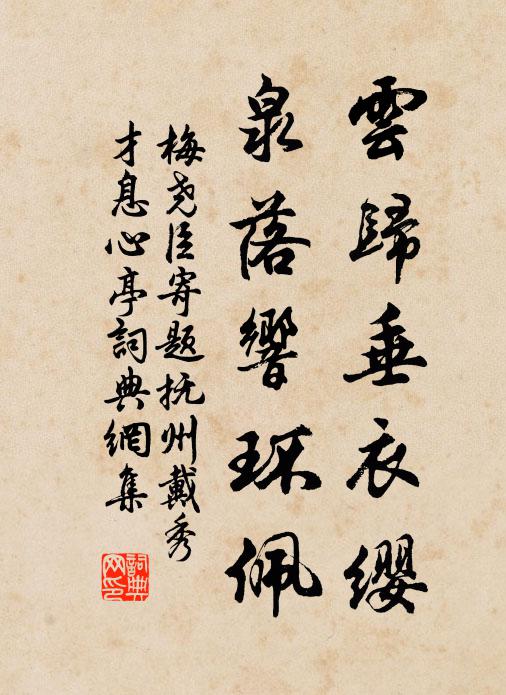 雲歸垂衣纓
泉落響環佩
梅尧臣寄题抚州戴秀
才息心亭詞典網集
詞典网印